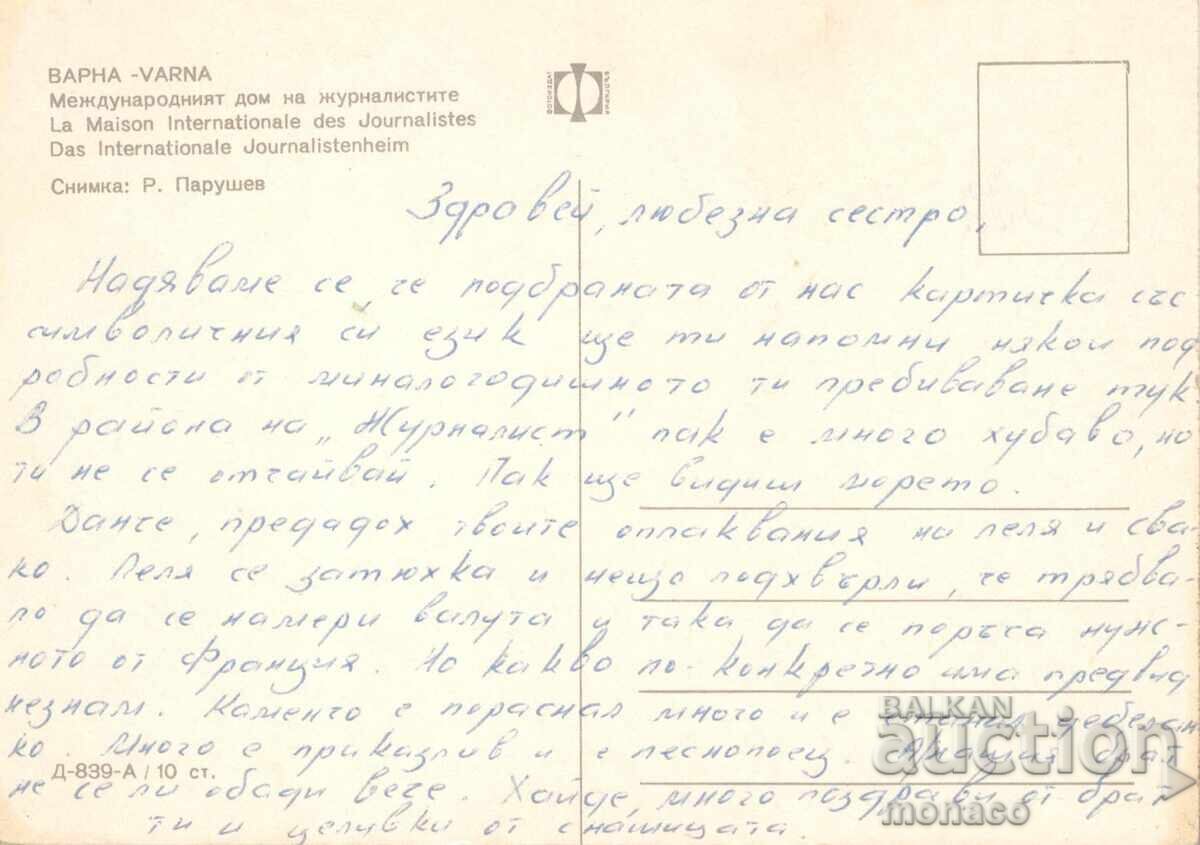 ВАРНА -VARNA
Международният дом на журналистите
La Maison Internationale des Journalistes
Das Internationale Journalistenheim
Снимка: Р. Парушев
ФОТОИЗДАТ
БЪЛГАРИЯ
Здравей, любезна сестро,
Надяваме се, че подбраната от нас картичка със
символичния си език ще ти напомни някои под
робности от миналогодишното ти пребиваване тук
В района на „Журналист" пак е много хубаво, но
ти не се отчайвай. Пак ще видиш морето.
Данче, предадох твоите оплаквания на леля и сва
ко. Леля се затюхка и нещо подхвърли, че трябва-
ло да се намери валута и така да се поръса нуж-
ното от Франция. Но какво по-конкретно има предвид
незнам. Каменчо е пораснал много и е дебелан
ко. Много е приказлив и е песнопоец. брат
не се ли обади вече. Хайде, много поздрави от брат
ти и целувки от снашицата.
Д-839-А / 10 ст.
BALKAN
auction
monaco